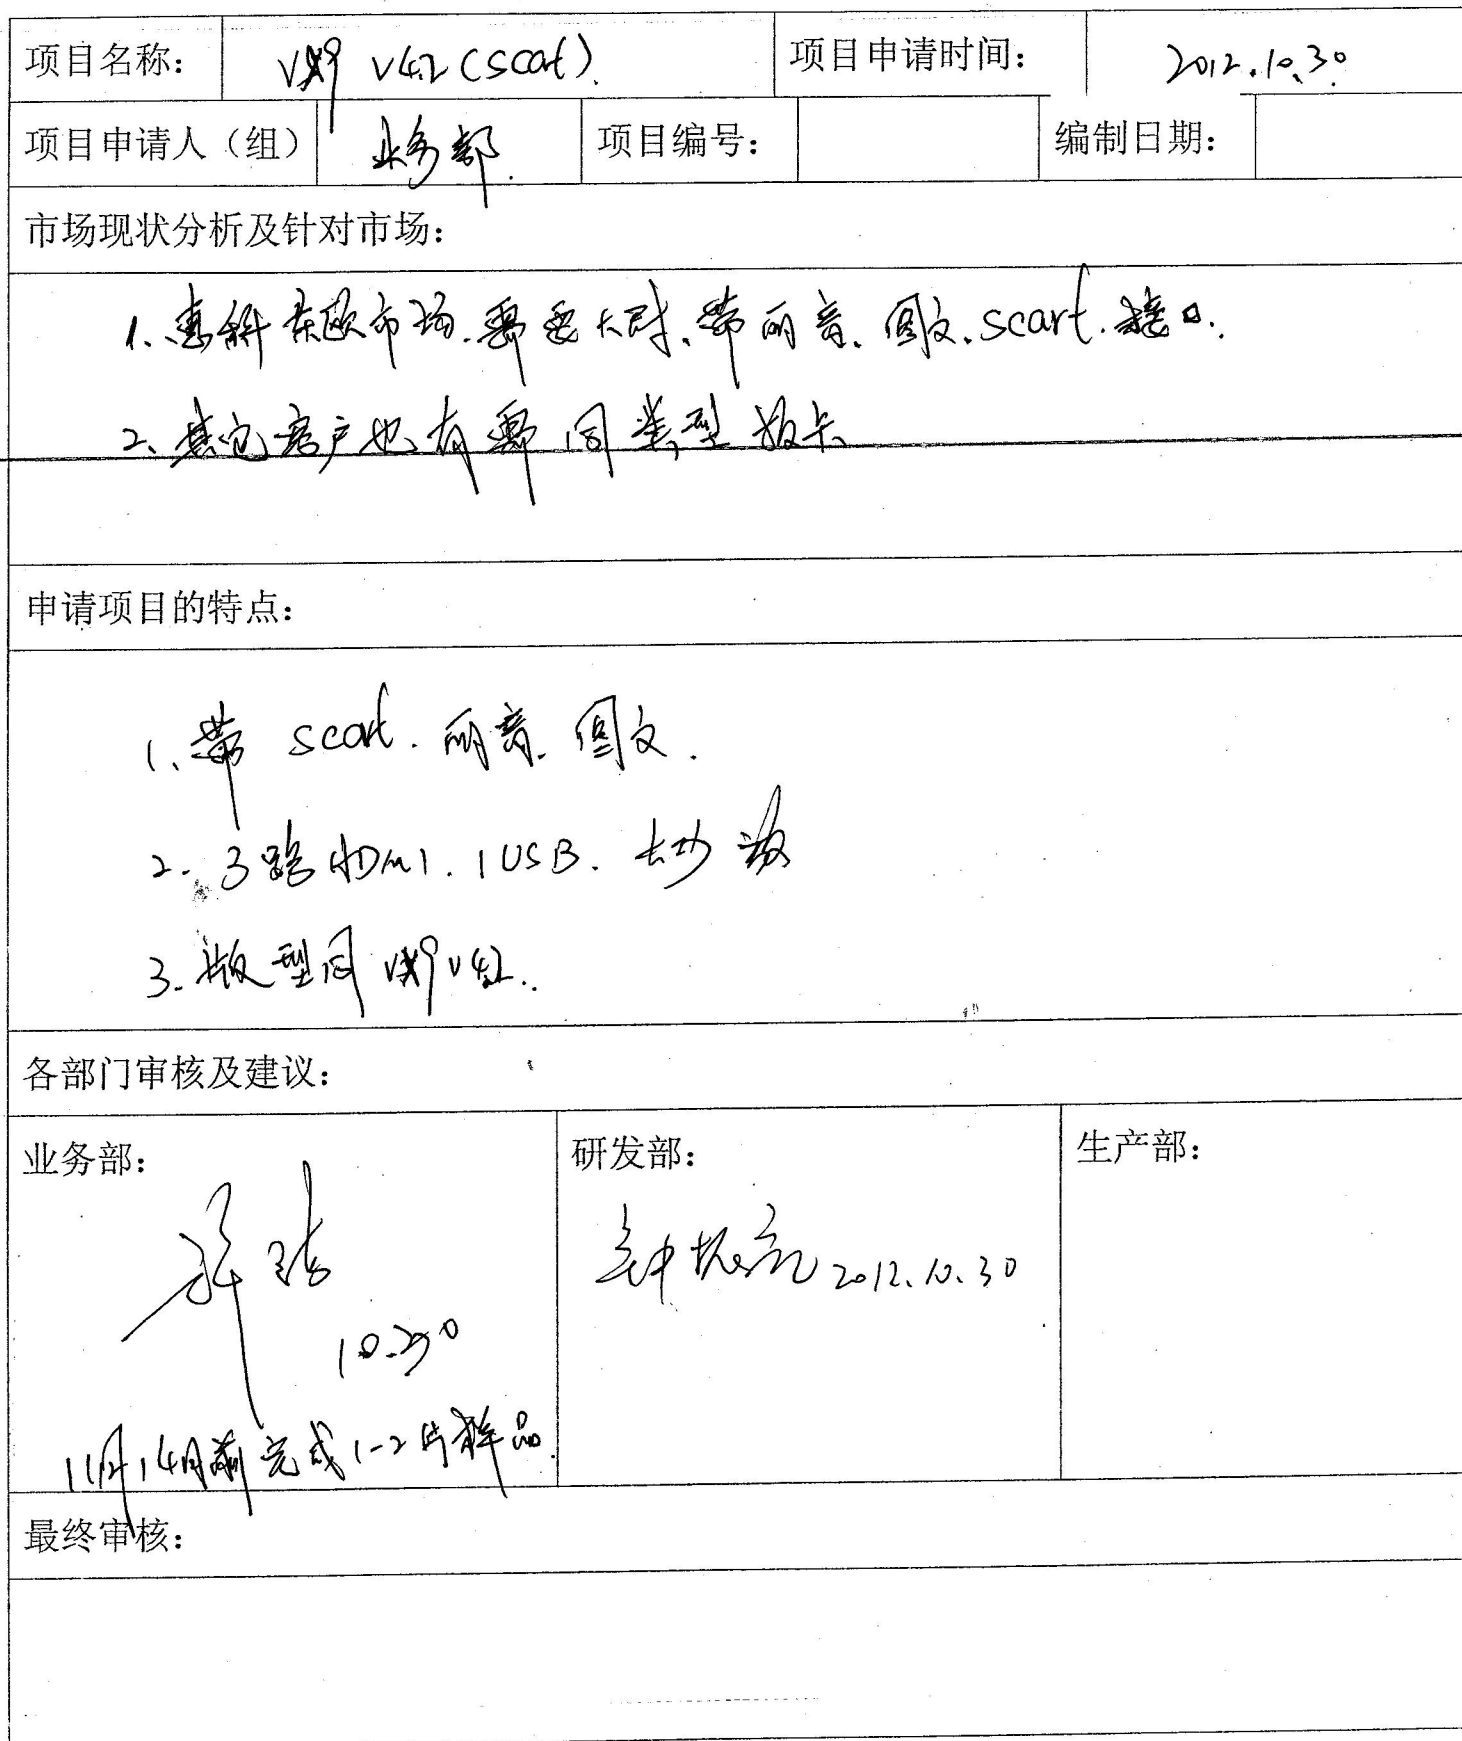 项目名称： VX9 V4.2 (scart) 项目申请时间： 2012.10.30
项目申请人（组） 业务部. 项目编号： 编制日期：
市场现状分析及针对市场：
1、惠科东欧市场.需要大尺寸、带丽音、图文.scart.接口.
2、其它客户也有需同类型板卡
申请项目的特点：
1、带 scart. 丽音. 图文.
2. 3路HDMI. 1USB.
3. 板型同 VX9 V4.2..
各部门审核及建议：
业务部： 研发部： 生产部：
2012.10.30
10.30
11月14日前完成1-2片样品.
最终审核：